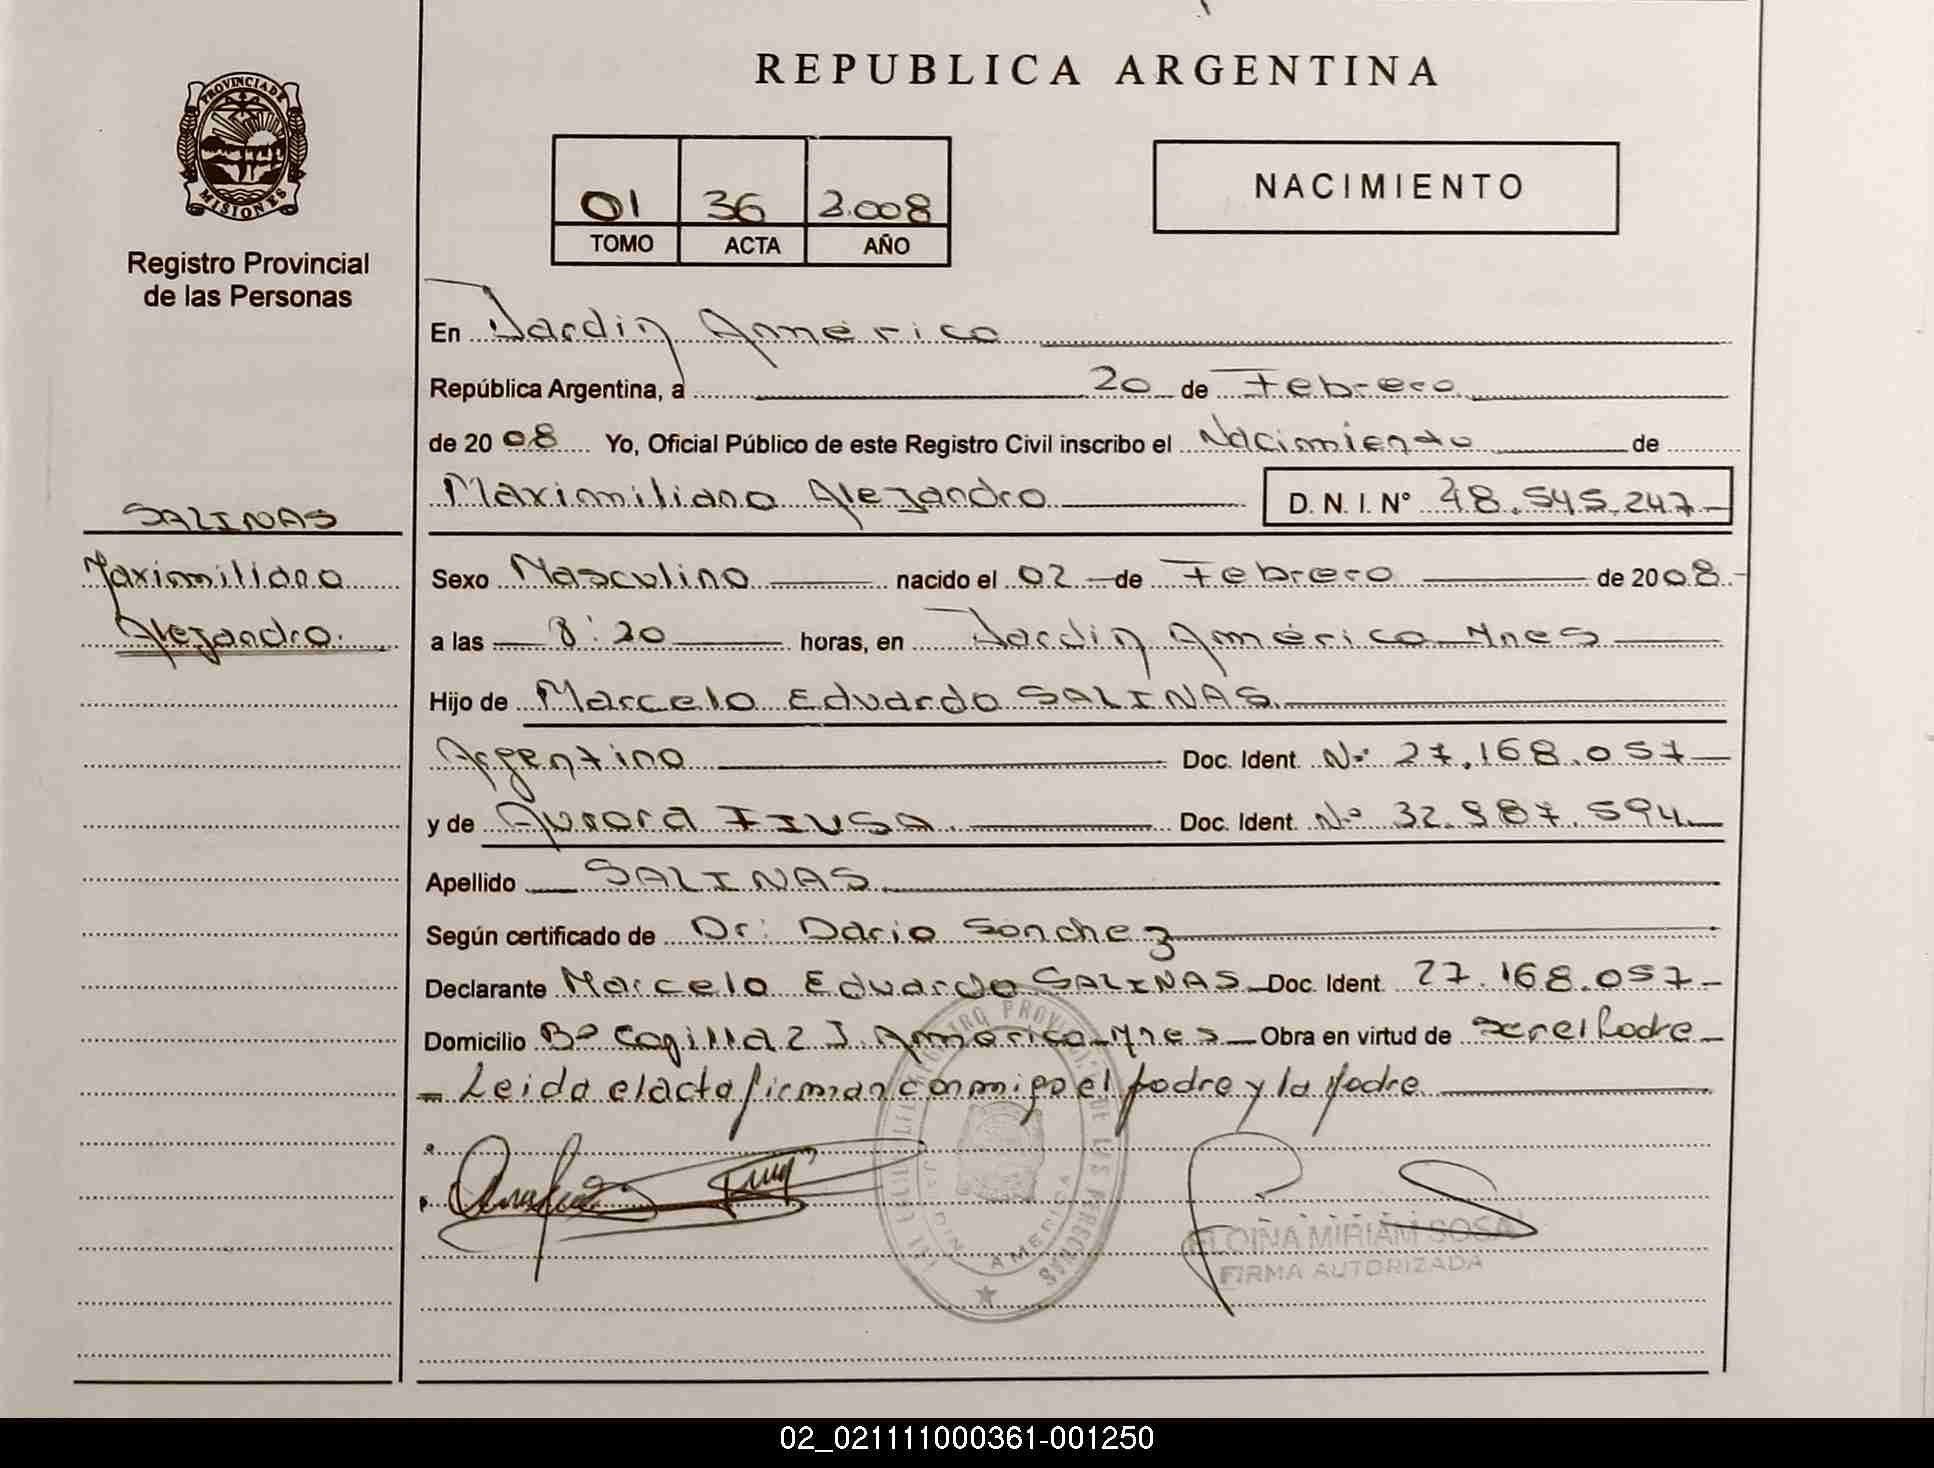 REPUBLICA ARGENTINA
PROVINCIA DE
MISIONES
Registro Provincial
de las Personas
01 36 2.008
TOMO ACTA AÑO
NACIMIENTO
En Jardin América
República Argentina, a 20 de Febrero
de 20 08 Yo, Oficial Público de este Registro Civil inscribo el Nacimiento de
Maximiliano Alejandro D. N. I. N° 48.545.247
SALINAS
Maximiliano
Alejandro.
Sexo Masculino nacido el 02 de Febrero de 2008
a las 8:20 horas, en Jardin América Mnes
Hijo de Marcelo Eduardo SALINAS
Argentino Doc. Ident. N° 27.168.057
y de Aurora Doc. Ident. N°
Apellido SALINAS
Según certificado de Dr: Dario Sanchez
Declarante Marcelo Eduardo SALINAS Doc. Ident. 27.168.057
Domicilio B° Capilla 2 J. América Mnes Obra en virtud de ser el Padre
Leida el acta firman conmigo el padre y la Madre
JARDIN AMERICA
MIRIAM SOSA
FIRMA AUTORIZADA
02_021111000361-001250